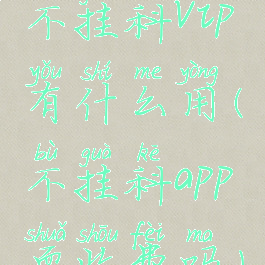 不挂科VIP
yǒu shí me yòng
有什么用(
bù guà kē
不挂科app
shuǎ shōu fèi ma
要收费吗)